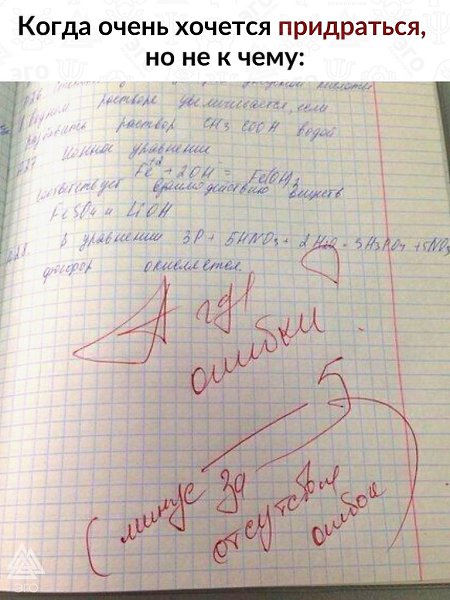 Когда очень хочется придраться,
но не к чему:
В водном растворе увеличивается, если
разбавить раствор CH3COOH водой
Ионное уравнение
Fe+2 + 2OH = Fe(OH)2
соответствует взаимодействию веществ
FeSO4 и LiOH
В уравнении 3P + 5HNO3 + 2H2O = 3H3PO4 + 5NO
фосфор окисляется.
А где
ошибки?
5-
(минус за
отсутствие
ошибок)
эго